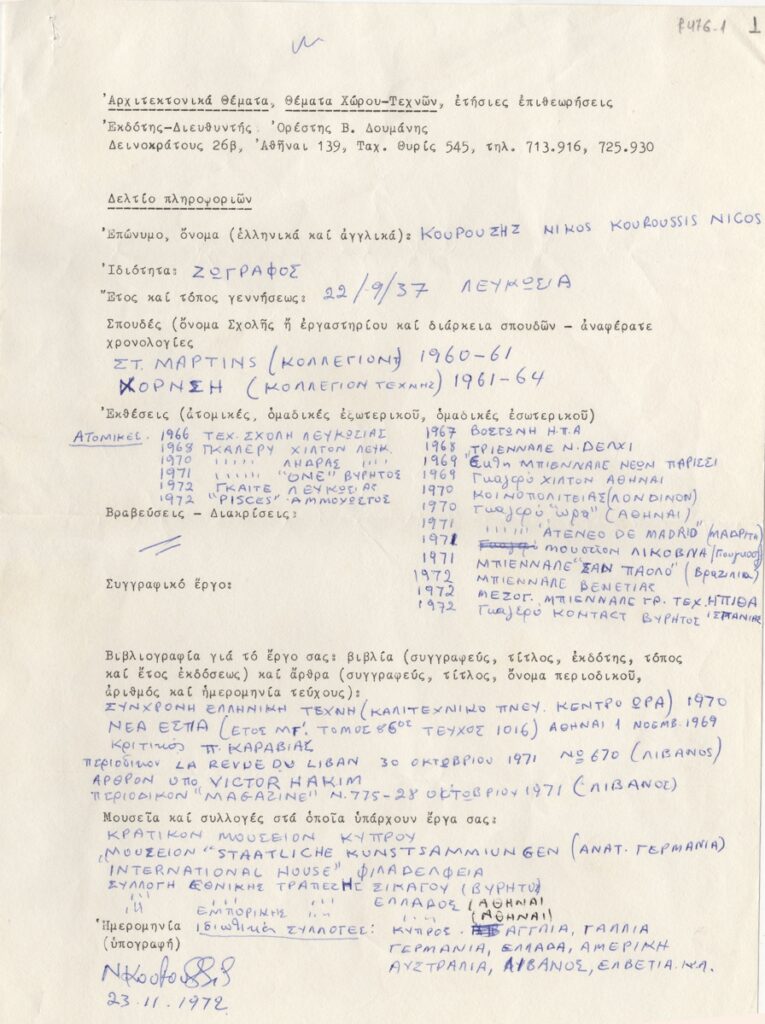 P.476.1 1
Ἀρχιτεκτονικά Θέματα, Θέματα Χώρου-Τεχνῶν, ἐτήσιες ἐπιθεωρήσεις
Ἐκδότης-Διευθυντής Ὀρέστης Β. Δουμάνης
Δεινοκράτους 26β, Ἀθῆναι 139, Ταχ. Θυρίς 545, τηλ. 713.916, 725.930
Δελτίο πληροφοριῶν
Ἐπώνυμο, ὄνομα (ἑλληνικά καί ἀγγλικά): ΚΟΥΡΟΥΣΗΣ ΝΙΚΟΣ KOUROUSSIS NICOS
Ἰδιότητα: ΖΩΓΡΑΦΟΣ
Ἔτος καί τόπος γεννήσεως: 22/9/37 ΛΕΥΚΩΣΙΑ
Σπουδές (ὄνομα Σχολῆς ἤ ἐργαστηρίου καί διάρκεια σπουδῶν - ἀναφέρατε
χρονολογίες
ΣΤ. MARTINS (ΚΟΛΛΕΓΙΟΝ) 1960-61
ΧΟΡΝΣΗ (ΚΟΛΛΕΓΙΟΝ ΤΕΧΝΗΣ) 1961-64
Ἐκθέσεις (ἀτομικές, ὁμαδικές ἐξωτερικοῦ, ὁμαδικές ἐσωτερικοῦ)
ΑΤΟΜΙΚΕΣ. 1966 ΤΕΧ. ΣΧΟΛΗ ΛΕΥΚΩΣΙΑΣ
1968 ΓΚΑΛΕΡΥ ΧΙΛΤΟΝ ΛΕΥΚ.
1970 ''''' ΛΗΔΡΑΣ ''''
1971 ''''' "ONE" ΒΥΡΗΤΟΣ
1972 ΓΚΑΙΤΕ ΛΕΥΚΩΣΙΑΣ
1972 "PISCES" ΑΜΜΟΧΩΣΤΟΣ
1967 ΒΟΣΤΩΝΗ Η.Π.Α
1968 ΤΡΙΕΝΝΑΛΕ Ν. ΔΕΛΧΙ
1969 Έκθη ΜΠΙΕΝΝΑΛΕ ΝΕΩΝ ΠΑΡΙΣΙ
1969 Γκαλερύ ΧΙΛΤΟΝ ΑΘΗΝΑΙ
1970 ΚΟΙΝΟΠΟΛΙΤΕΙΑΣ (ΛΟΝΔΙΝΟΝ)
1970 Γκαλερύ "ώρα" (ΑΘΗΝΑΙ)
1971 ''''' "ATENEO DE MADRID" (ΜΑΔΡΙΤΗ)
1971 ΜΟΥΣΕΙΟΝ ΛΙΚΟΒΝΑ
1971 ΜΠΙΕΝΝΑΛΕ "ΣΑΝ ΠΑΟΛΟ" (Βραζιλία)
1972 ΜΠΙΕΝΝΑΛΕ ΒΕΝΕΤΙΑΣ
1972 ΜΕΣΟΓ. ΜΠΙΕΝΝΑΛΕ ΓΡ. ΤΕΧ. ΗΠΙΘΑ ΙΣΠΑΝΙΑΣ
1972 Γκαλερύ ΚΟΝΤΑCT ΒΥΡΗΤΟΣ
Βραβεύσεις - Διακρίσεις:
Συγγραφικό ἔργο:
Βιβλιογραφία γιά τό ἔργο σας: βιβλία (συγγραφεύς, τίτλος, ἐκδότης, τόπος
καί ἔτος ἐκδόσεως) καί ἄρθρα (συγγραφεύς, τίτλος, ὄνομα περιοδικοῦ,
ἀριθμός καί ἡμερομηνία τεύχους):
ΣΥΝΧΡΟΝΗ ΕΛΛΗΝΙΚΗ ΤΕΧΝΗ (ΚΑΛΙΤΕΧΝΙΚΟ ΠΝΕΥ. ΚΕΝΤΡΟ ΩΡΑ) 1970
ΝΕΑ ΕΣΤΙΑ (ΕΤΟΣ ΜΓ'. ΤΟΜΟΣ 86ος ΤΕΥΧΟΣ 1016) ΑΘΗΝΑΙ 1 ΝΟΕΜΒ. 1969
Κριτικός Π. ΚΑΡΑΒΙΑΣ
Περιοδικον LA REVUE DU LIBAN 30 ΟΚΤΩΒΡΙΟΥ 1971 No 670 (ΛΙΒΑΝΟΣ)
ΑΡΘΡΟΝ ΥΠΟ VICTOR HAKIM
ΠΕΡΙΟΔΙΚΟΝ "MAGAZINE" N. 775-28 ΟΚΤΩΒΡΙΟΥ 1971 (ΛΙΒΑΝΟΣ)
Μουσεῖα καί συλλογές στά ὁποῖα ὑπάρχουν ἔργα σας:
ΚΡΑΤΙΚΟΝ ΜΟΥΣΕΙΟΝ ΚΥΠΡΟΥ
ΜΟΥΣΕΙΟΝ "STAATLICHE KUNSTSAMMIUNGEN (ΑΝΑΤ. ΓΕΡΜΑΝΙΑ)
INTERNATIONAL HOUSE" ΦΙΛΑΔΕΛΦΕΙΑ
ΣΥΛΛΟΓΗ ΕΘΝΙΚΗΣ ΤΡΑΠΕΖΗΣ ΣΙΚΑΓΟΥ (ΒΥΡΗΤΟΣ)
'''' '''' '''' ΕΛΛΑΔΟΣ (ΑΘΗΝΑΙ)
'''' ΕΜΠΟΡΙΚΗΣ '''' '''' (ΑΘΗΝΑΙ)
Ἡμερομηνία ιδιωτικαι ΣΥΛΛΟΓΕΣ: ΚΥΠΡΟΣ - ΑΓΓΛΙΑ, ΓΑΛΛΙΑ
(ὑπογραφή) ΓΕΡΜΑΝΙΑ, ΕΛΛΑΔΑ, ΑΜΕΡΙΚΗ
ΑΥΣΤΡΑΛΙΑ, ΛΙΒΑΝΟΣ, ΕΛΒΕΤΙΑ. κ.λ.
23.11.1972